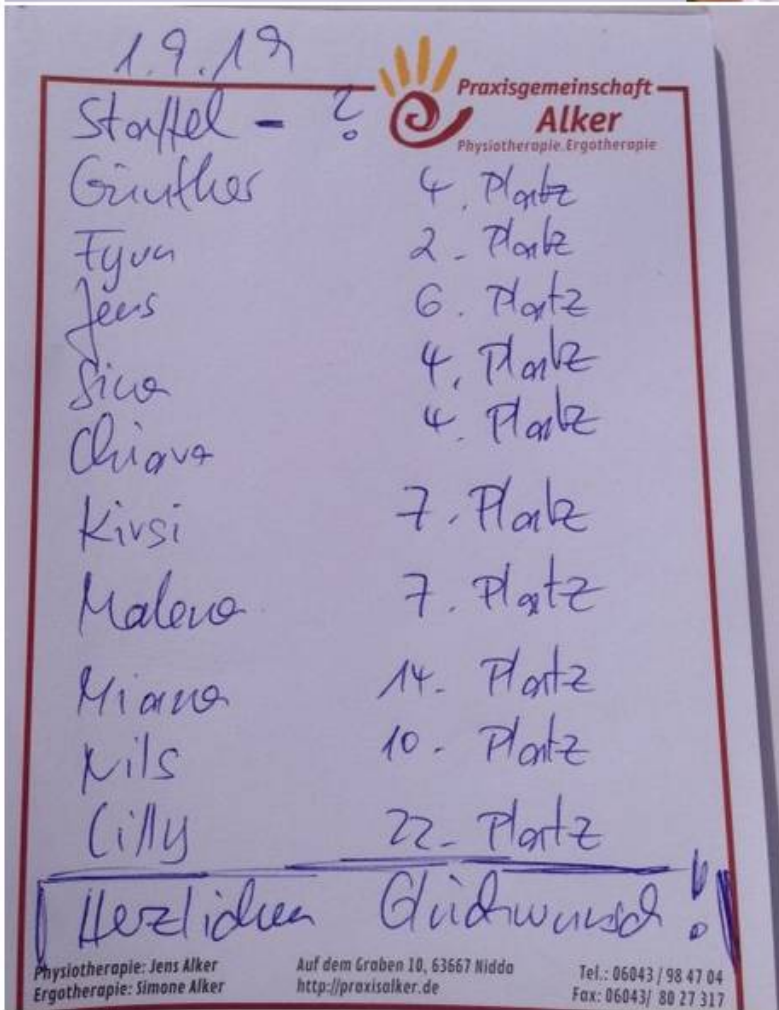 1.9.19
Praxisgemeinschaft
Alker
Physiotherapie.Ergotherapie
Staffel - ?
Günther 4. Platz
Fynn 2. Platz
Jens 6. Platz
Sina 4. Platz
Chiara 4. Platz
Kirsi 7. Platz
Malena 7. Platz
Miana 14. Platz
Nils 10. Platz
Cilly 22. Platz
Herzlichen Glückwunsch!
Physiotherapie: Jens Alker
Ergotherapie: Simone Alker
Auf dem Graben 10, 63667 Nidda
http://praxisalker.de
Tel.: 06043 / 98 47 04
Fax: 06043/ 80 27 317